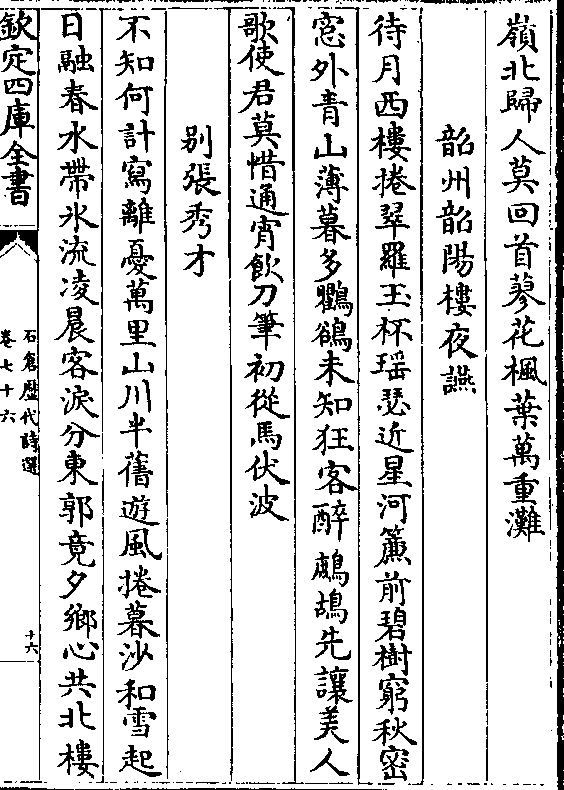 嶺北歸人莫回首蓼花楓葉萬重灘
韶州韶陽樓夜讌
待月西樓捲翠羅玉杯瑶瑟近星河簾前碧樹窮秋密
窓外青山薄暮多鸜鵒未知狂客醉鷓鴣先讓美人
歌使君莫惜通宵飲刀筆初從馬伏波
别張秀才
不知何計寫離憂萬里山川半舊遊風捲暮沙和雪起
日融春水帶氷流凌晨客淚分東郭竟夕鄉心共北樓
欽定四庫全書
石倉歷代詩選
卷七十六
十六